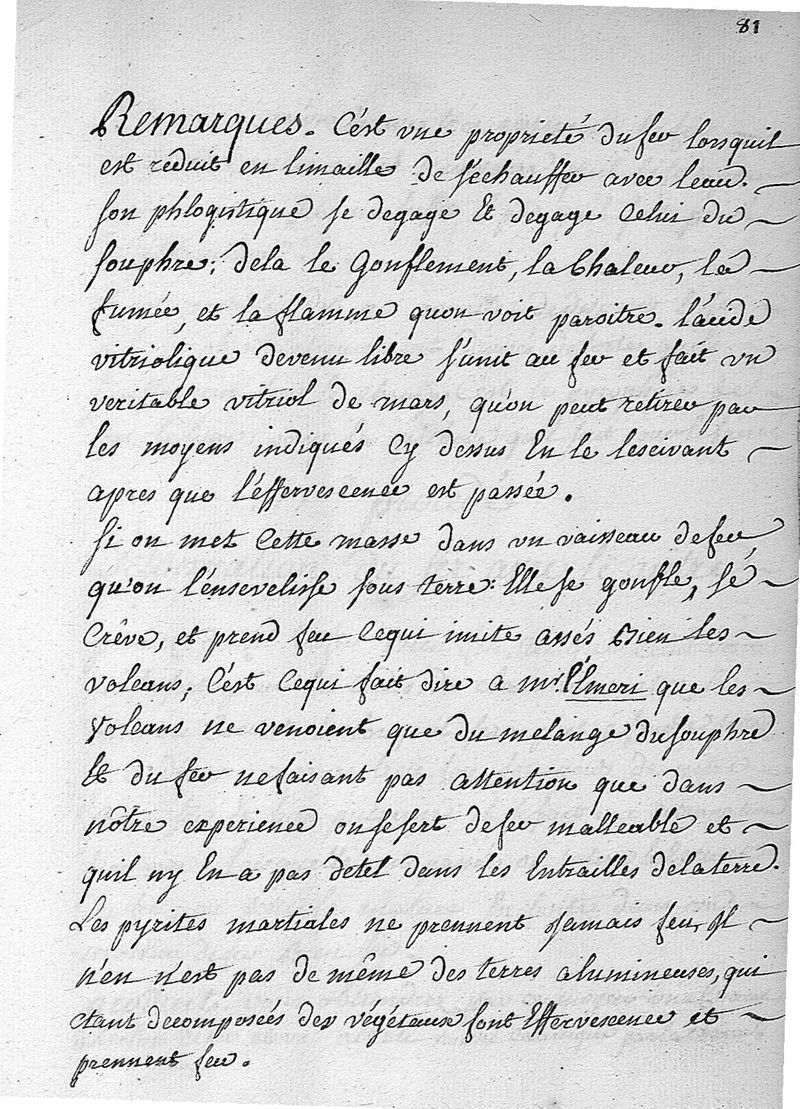 81
Remarques. C'est vne proprieté du fer lorsquil
est reduit en limaille de s'échauffer avec leau.
son phlogistique se degage Et degage Celui du
souphre; dela le Gonflement, la Chaleur, la
fumée, et la flamme quon voit paroitre. l'acide
vitriolique devenu libre s'unit au fer et fait vn
veritable vitriol de mars, qu'on peut retirer par
les moyens indiqués Cy dessus En le lescivant
apres que l'éffervescence est passée.
Si on met Cette masse dans vn vaisseau de fer
qu'on l'énsevelisse sous terre: Elle se gonfle, sé
Crêve, et prend feu Cequi imite assés Bien les
volcans; C'ést Cequi fait dire a mr. l'Émeri que les
Volcans ne venoient que du melange du souphre
Et du fer nefaisant pas attention que dans
nôtre experience onsesert defer malleable et
quil ny En a pas detel dans les Entrailles delaterre.
Les pyrites martiales ne prennent Jamais feu, Il
n'en n'est pas de même des terres alumineuses, qui
étant decomposées des vegétaux font Effervescence et
prennent feu.